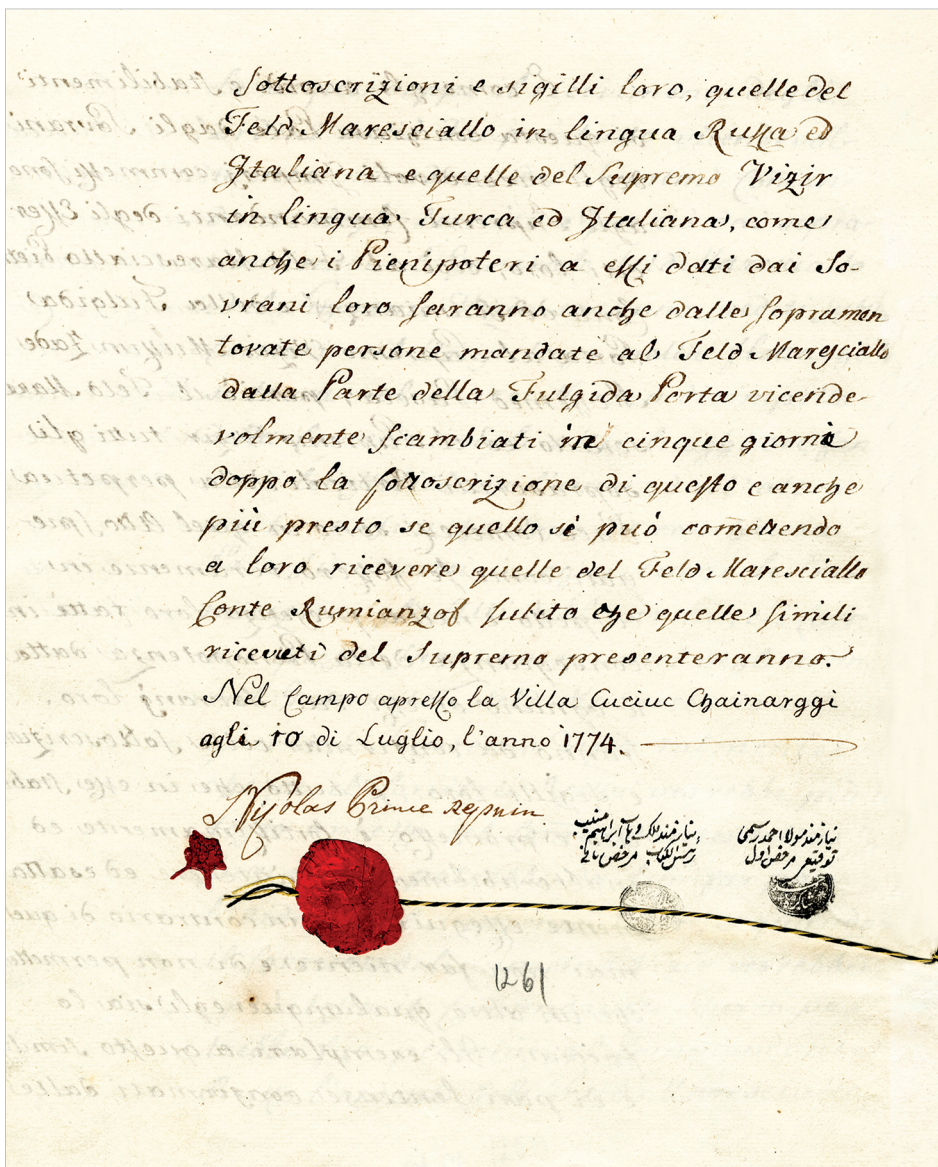 sottoscrizioni e sigilli loro, quelle del
Feld Maresciallo in lingua Russa ed
Italiana e quelle del Supremo Vizir
in lingua Turca ed Italiana, come
anche i Pienipoteri a essi dati dai So-
vrani loro saranno anche dalle sopramen
tovate persone mandate al Feld Maresciallo
dalla Parte della Fulgida Porta vicende-
volmente scambiati in cinque giorni
doppo la sottoscrizione di questo e anche
più presto se quello si può com̃ettendo
a loro ricevere quelle del Feld Maresciallo
Conte Rumianzof subito che quelle simili
riceveti del Supremo presenteranno.
Nel Campo apresso la Villa Cuciuc Chainarggi
agli 10 di Luglio, l'anno 1774.
Nicolas Prince Repnin
نيازمند مولا احمد رسمی
توقيعی مرخص اول
ابراهيم منيب
رئيس الكتاب مرخص ثانی
1261